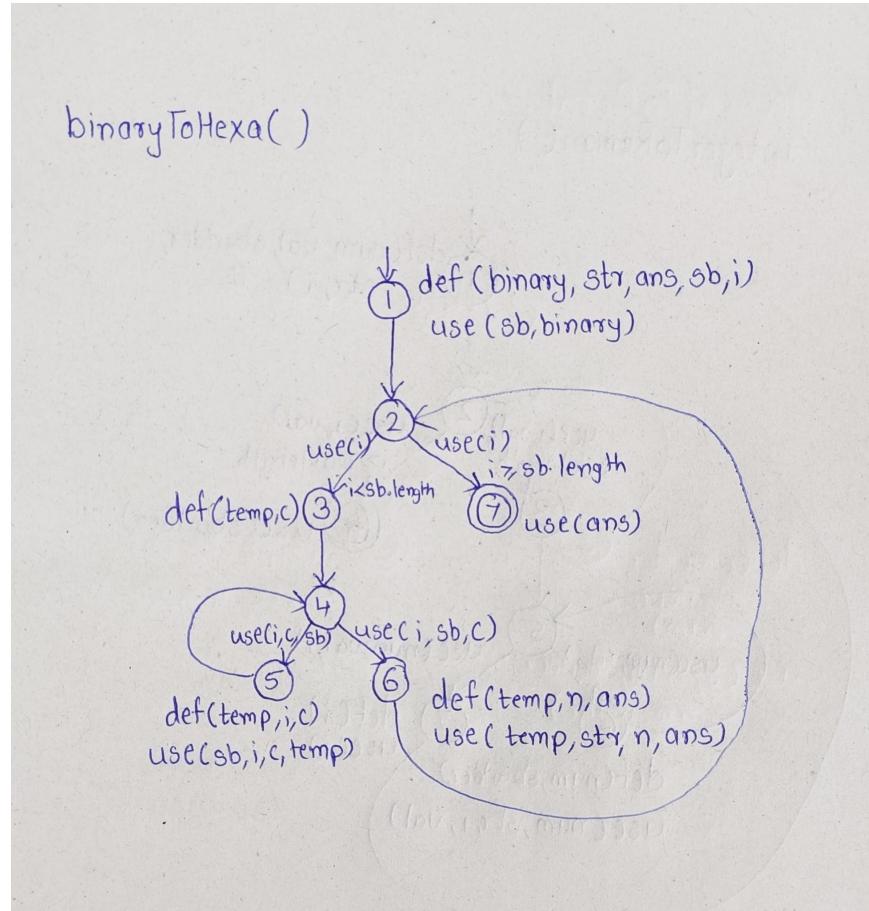 binaryToHexa( )
1
def (binary, str, ans, sb, i)
use (sb, binary)
2
use(i)
use(i)
i<sb.length
i ≥ sb.length
def(temp,c)
3
7
use(ans)
4
use(i,c,sb)
use(i, sb, c)
5
6
def(temp,i,c)
use(sb,i,c,temp)
def(temp,n,ans)
use( temp,str,n,ans)